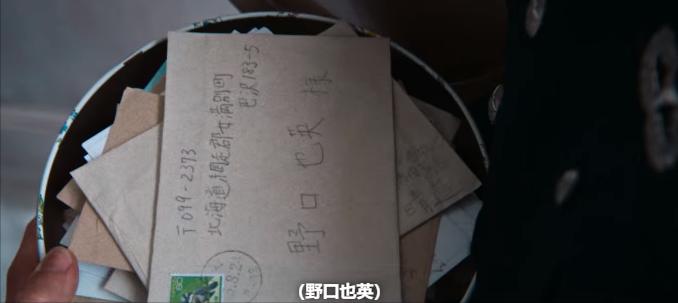 〒099-2373
北海道網走郡女満別町
巴沢183-5
野口也英 様
(野口也英)